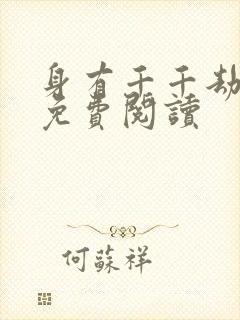 身有千千劫
免費閱讀
何蘇祥